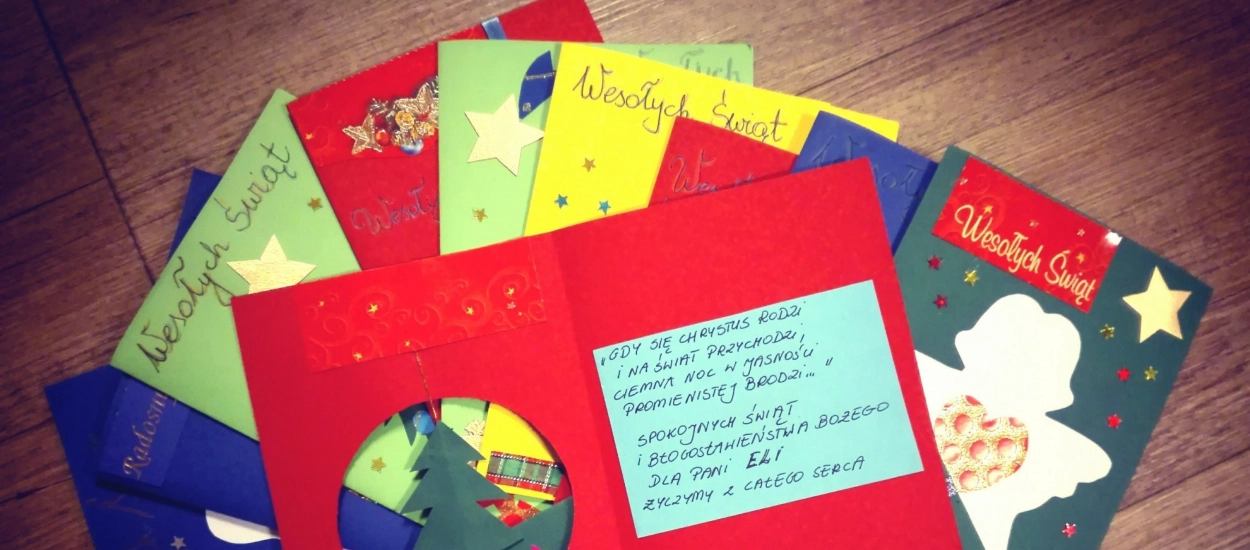 Wesołych
Wesołych Świąt
Wesołych Świąt
Wesołych Świąt
Radosny
„GDY SIĘ CHRYSTUS RODZI
I NA ŚWIAT PRZYCHODZI,
CIEMNA NOC W JASNOŚCI
PROMIENISTEJ BRODZI... "
SPOKOJNYCH ŚWIĄT
i BŁOGOSŁAWIEŃSTWA BOŻEGO
DLA PANI ELI
ŻYCZYMY Z CAŁEGO SERCA